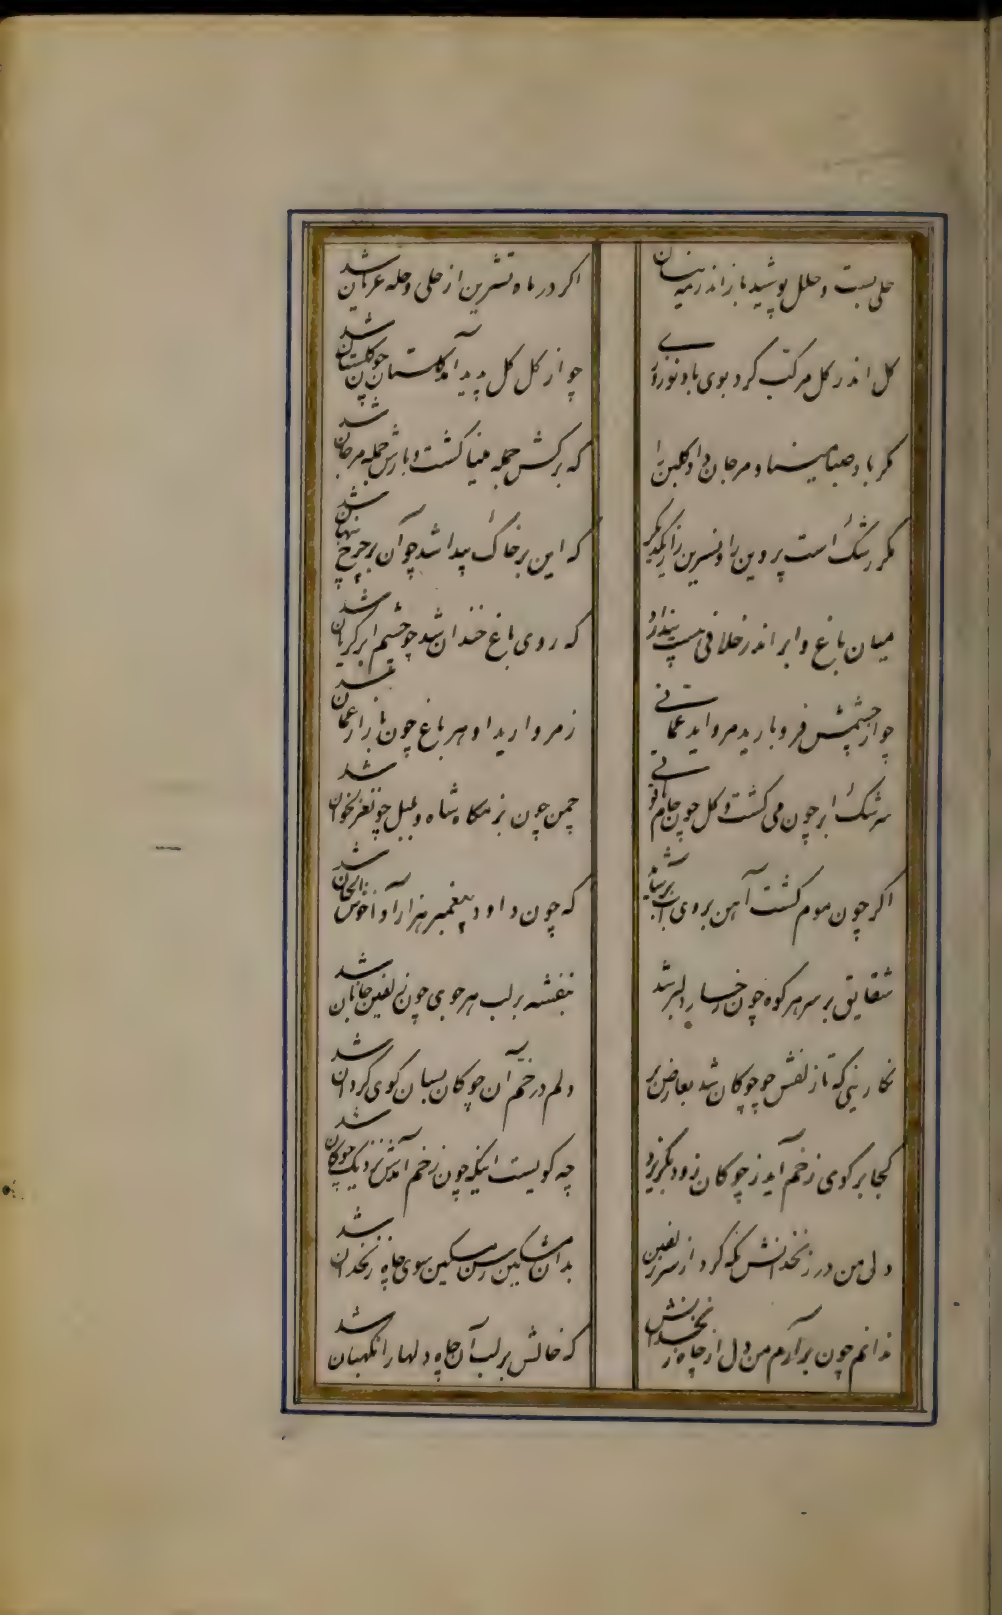 حلی بست و حلل پوشید باز اندر مه نیسان
اکر در ماه تشرین از حلی و حله عریان شد
کل اندر کل مرکب کرد بوی باد نوروزی
چو از کل کل پدید آمد کلستان چون کلستان شد
مکر باد صبا مینا و مرجان داد کلبن را
که برکش جمله مینا کشت و بارش جمله مرجان شد
مکر رشک است پروین را و نسرین را ز یکدیکر
که این بر خاک پیدا شد چو آن بر چرخ پنهان شد
میان باغ و ابر اندر خلافی هست پنداری
که روی باغ خندان شد چو چشم ابر کریان شد
چو از چشمش فرو بارید مروارید عمانی
ز مروارید او هر باغ چون بازار عمان شد
سرشک ابر چون می کشت و کل چون جام
چمن چون بزمکاه شاه و بلبل چون نغز خوان شد
اکر چون موم کشت آهن بروی آب
که چون داود پیغمبر هزار آوا خوش الحان شد
شقایق بر سر هر کوه چون رخسار دلبر شد
بنفشه بر لب هر جوی چون زلفین جانان شد
نکارینی که تا زلفش چو چوکان شد بعارض بر
دلم در خم آن چوکان بسان کوی کردان شد
کجا بر کوی زخم آید ز چوکان زود بکریزد
چه کویست اینکه چون زخم آمدش نزدیک چوکان شد
دلی من در زنخدانش نکه کرد از سر زلفین
بدان مشکین رسن مسکین سوی چاه زنخدان شد
ندانم چون برآرم من دل از چاه زنخدانش
که خالش بر لب آن چاه دلها را نکهبان شد